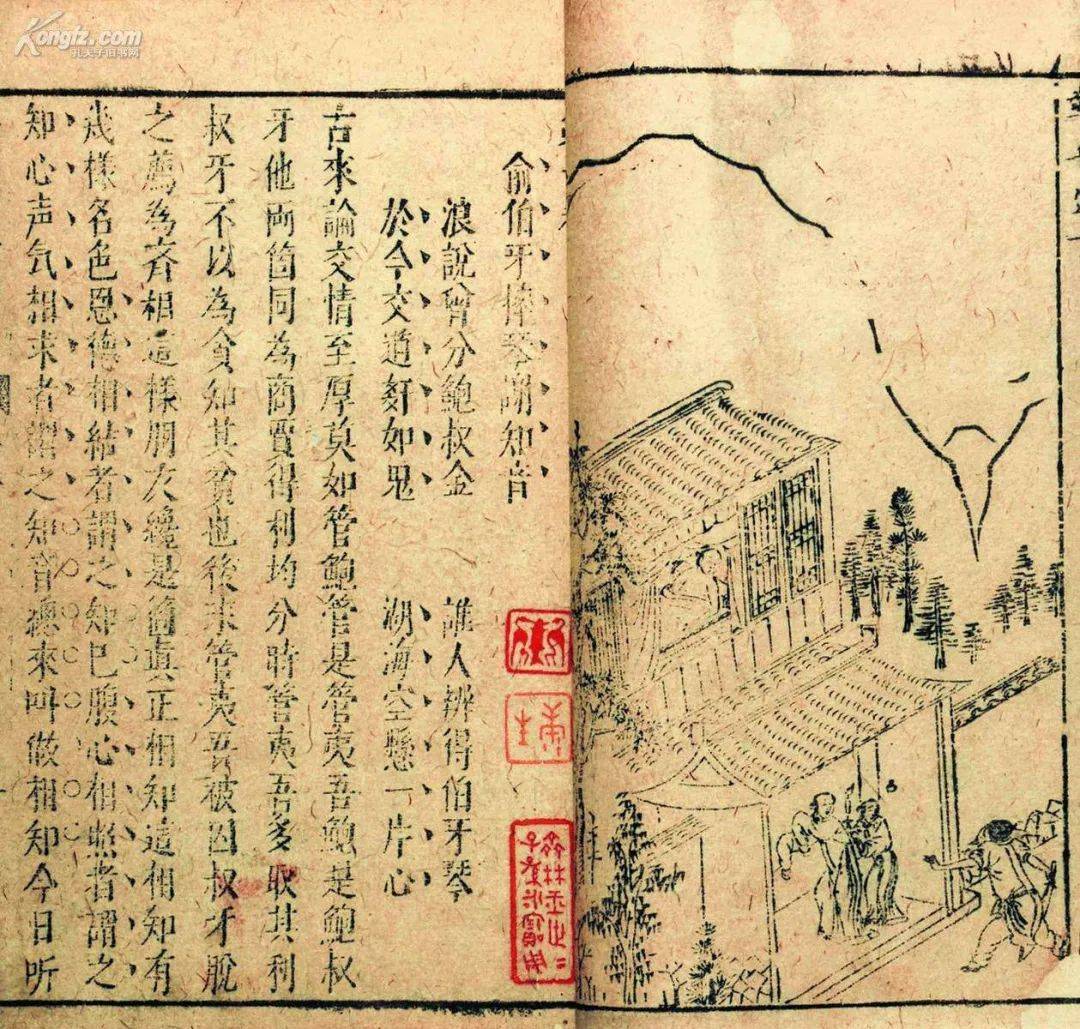 Kongfz.com
孔夫子旧书网
俞伯牙摔琴謝知音
浪說曾分鮑叔金 誰人辨得伯牙琴
於今交道奸如鬼 湖海空懸一片心
古來論交情至厚莫如管鮑管是管夷吾鮑是鮑叔
牙他兩箇同為商賈得利均分時管夷吾多取其利
叔牙不以為貪知其貧也後來管夷吾被囚叔牙脫
之薦為齊相這樣朋友纔是箇真正相知這相知有
幾樣名色恩德相結者謂之知己腹心相照者謂之
知心声气相求者謂之知音總來叫做相知今日听